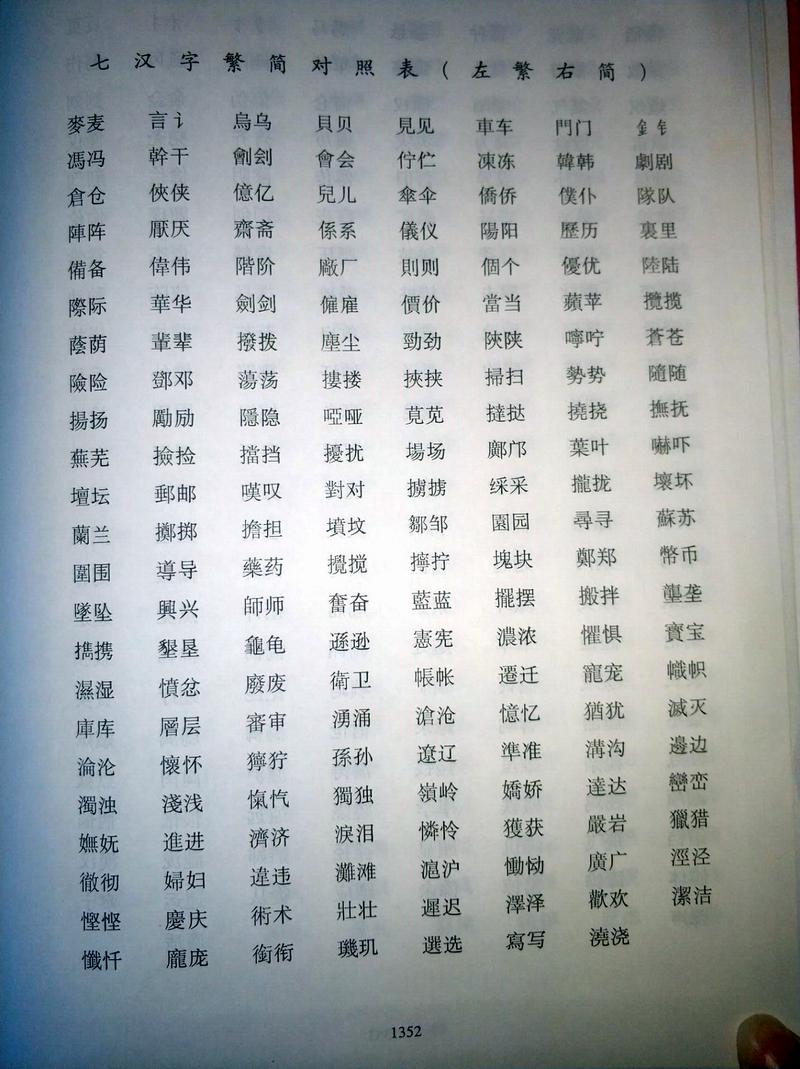 七 汉 字 繁 简 对 照 表 ( 左 繁 右 简 )
麥麦 言讠 烏乌 貝贝 見见 車车 門门 釒钅
馮冯 幹干 劊刽 會会 佇伫 凍冻 韓韩 劇剧
倉仓 俠侠 億亿 兒儿 傘伞 僑侨 僕仆 隊队
陣阵 厭厌 齋斋 係系 儀仪 陽阳 歷历 裏里
備备 偉伟 階阶 廠厂 則则 個个 優优 陸陆
際际 華华 劍剑 僱雇 價价 當当 蘋苹 攬揽
蔭荫 輩辈 撥拨 塵尘 勁劲 陝陕 嚀咛 蒼苍
險险 鄧邓 蕩荡 摟搂 挾挟 掃扫 勢势 隨随
揚扬 勵励 隱隐 啞哑 莧苋 撻挞 撓挠 撫抚
蕪芜 撿捡 擋挡 擾扰 場场 鄺邝 葉叶 嚇吓
壇坛 郵邮 嘆叹 對对 擄掳 綵采 攏拢 壞坏
蘭兰 擲掷 擔担 墳坟 鄒邹 園园 尋寻 蘇苏
圍围 導导 藥药 攪搅 擰拧 塊块 鄭郑 幣币
墜坠 興兴 師师 奮奋 藍蓝 擺摆 搬拌 壟垄
攜携 墾垦 龜龟 遜逊 憲宪 濃浓 懼惧 寶宝
濕湿 憤忿 廢废 衛卫 帳帐 遷迁 寵宠 幟帜
庫库 層层 審审 湧涌 滄沧 憶忆 猶犹 滅灭
淪沦 懷怀 獰狞 孫孙 遼辽 準准 溝沟 邊边
濁浊 淺浅 愾忾 獨独 嶺岭 嬌娇 達达 巒峦
嫵妩 進进 濟济 淚泪 憐怜 獲获 嚴岩 獵猎
徹彻 婦妇 違违 灘滩 滬沪 慟恸 廣广 涇泾
慳悭 慶庆 術术 壯壮 遲迟 澤泽 歡欢 潔洁
懺忏 龐庞 銜衔 璣玑 選选 寫写 澆浇
1352